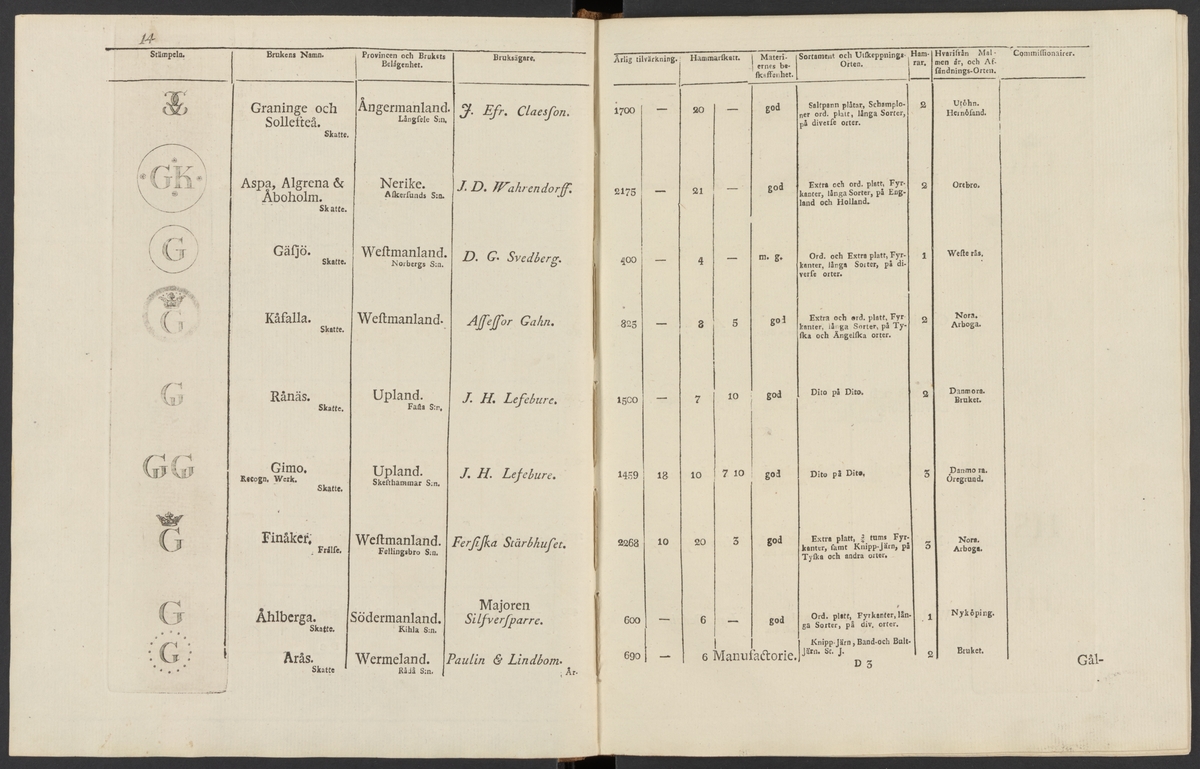 14
Stämpeln. Brukens Namn. Provincen och Brukets Belägenhet. Bruksägare. Årlig tilvärkning. Hammarſkatt. Materiernes beſkaffenhet. Sortament och Utſkeppnings-Orten. Hamrar, Hvariſrån Malmen är, och Afſändnings-Orten. Commiſſionairer.
Graninge och Ångermanland. J. Efr. Claeſſon. 1700 — 20 — god Saltpann plåtar, Schamplo- 2 Utöhn.
Solleſteå. Långſele S:n. ner ord. platt, långa Sorter, Hernöſand.
Skatte. på diverſe orter.
GK
Aspa, Algrena & Nerike. J. D. Wahrendorff. 2175 — 21 — god Extra och ord. platt, Fyr- 2 Orebro.
Åboholm. Aſkerſunds S:n. kanter, långa Sorter, på Eng-
Skatte. land och Holland.
G
Gäſjö. Weſtmanland. D. G. Svedberg. 400 — 4 — m. g. Ord. och Extra platt, Fyr- 1 Weſte rås,
Skatte. Norbergs S:n. kanter, långa Sorter, på di-
verſe orter.
G
Kåfalla. Weſtmanland. Aſſeſſor Gahn. 825 — 8 5 god Extra och ord. platt, Fyr 2 Nora.
Skatte. kanter, långa Sorter, på Ty- Arboga.
ſka och Ängelſka orter.
G
Rånäs. Upland. J. H. Lefebure. 1500 — 7 10 god Dito på Dito. 2 Danmora.
Skatte. Faſta S:n. Bruket.
GG
Gimo. Upland. J. H. Lefebure. 1459 18 10 7 10 god Dito på Dito, 3 Danmo ra.
Recogn. Werk. Skeſthammar S:n. Öregrund.
Skatte.
G
Finåker. Weſtmanland. Ferſiſka Stärbhuſet. 2268 10 20 3 god Extra platt, ¾ tums Fyr- 3 Nora.
Frälſe. Fellingsbro S:n. kanter, ſamt Knipp-Järn, på Arboga.
Tyſka och andra orter.
G
Åhlberga. Södermanland. Majoren 600 — 6 — god Ord. platt, Fyrkanter, lån- 1 Nyköping.
Skatte. Kihla S:n. Silfverſparre. ga Sorter, på div. orter.
G
Årås. Wermeland. Paulin & Lindbom. 690 — 6 Manufactorie. Knipp-Järn, Band-och Bult- 2 Bruket.
Skatte Rådå S:n. Järn. St. J.
År-
D 3
Gål-